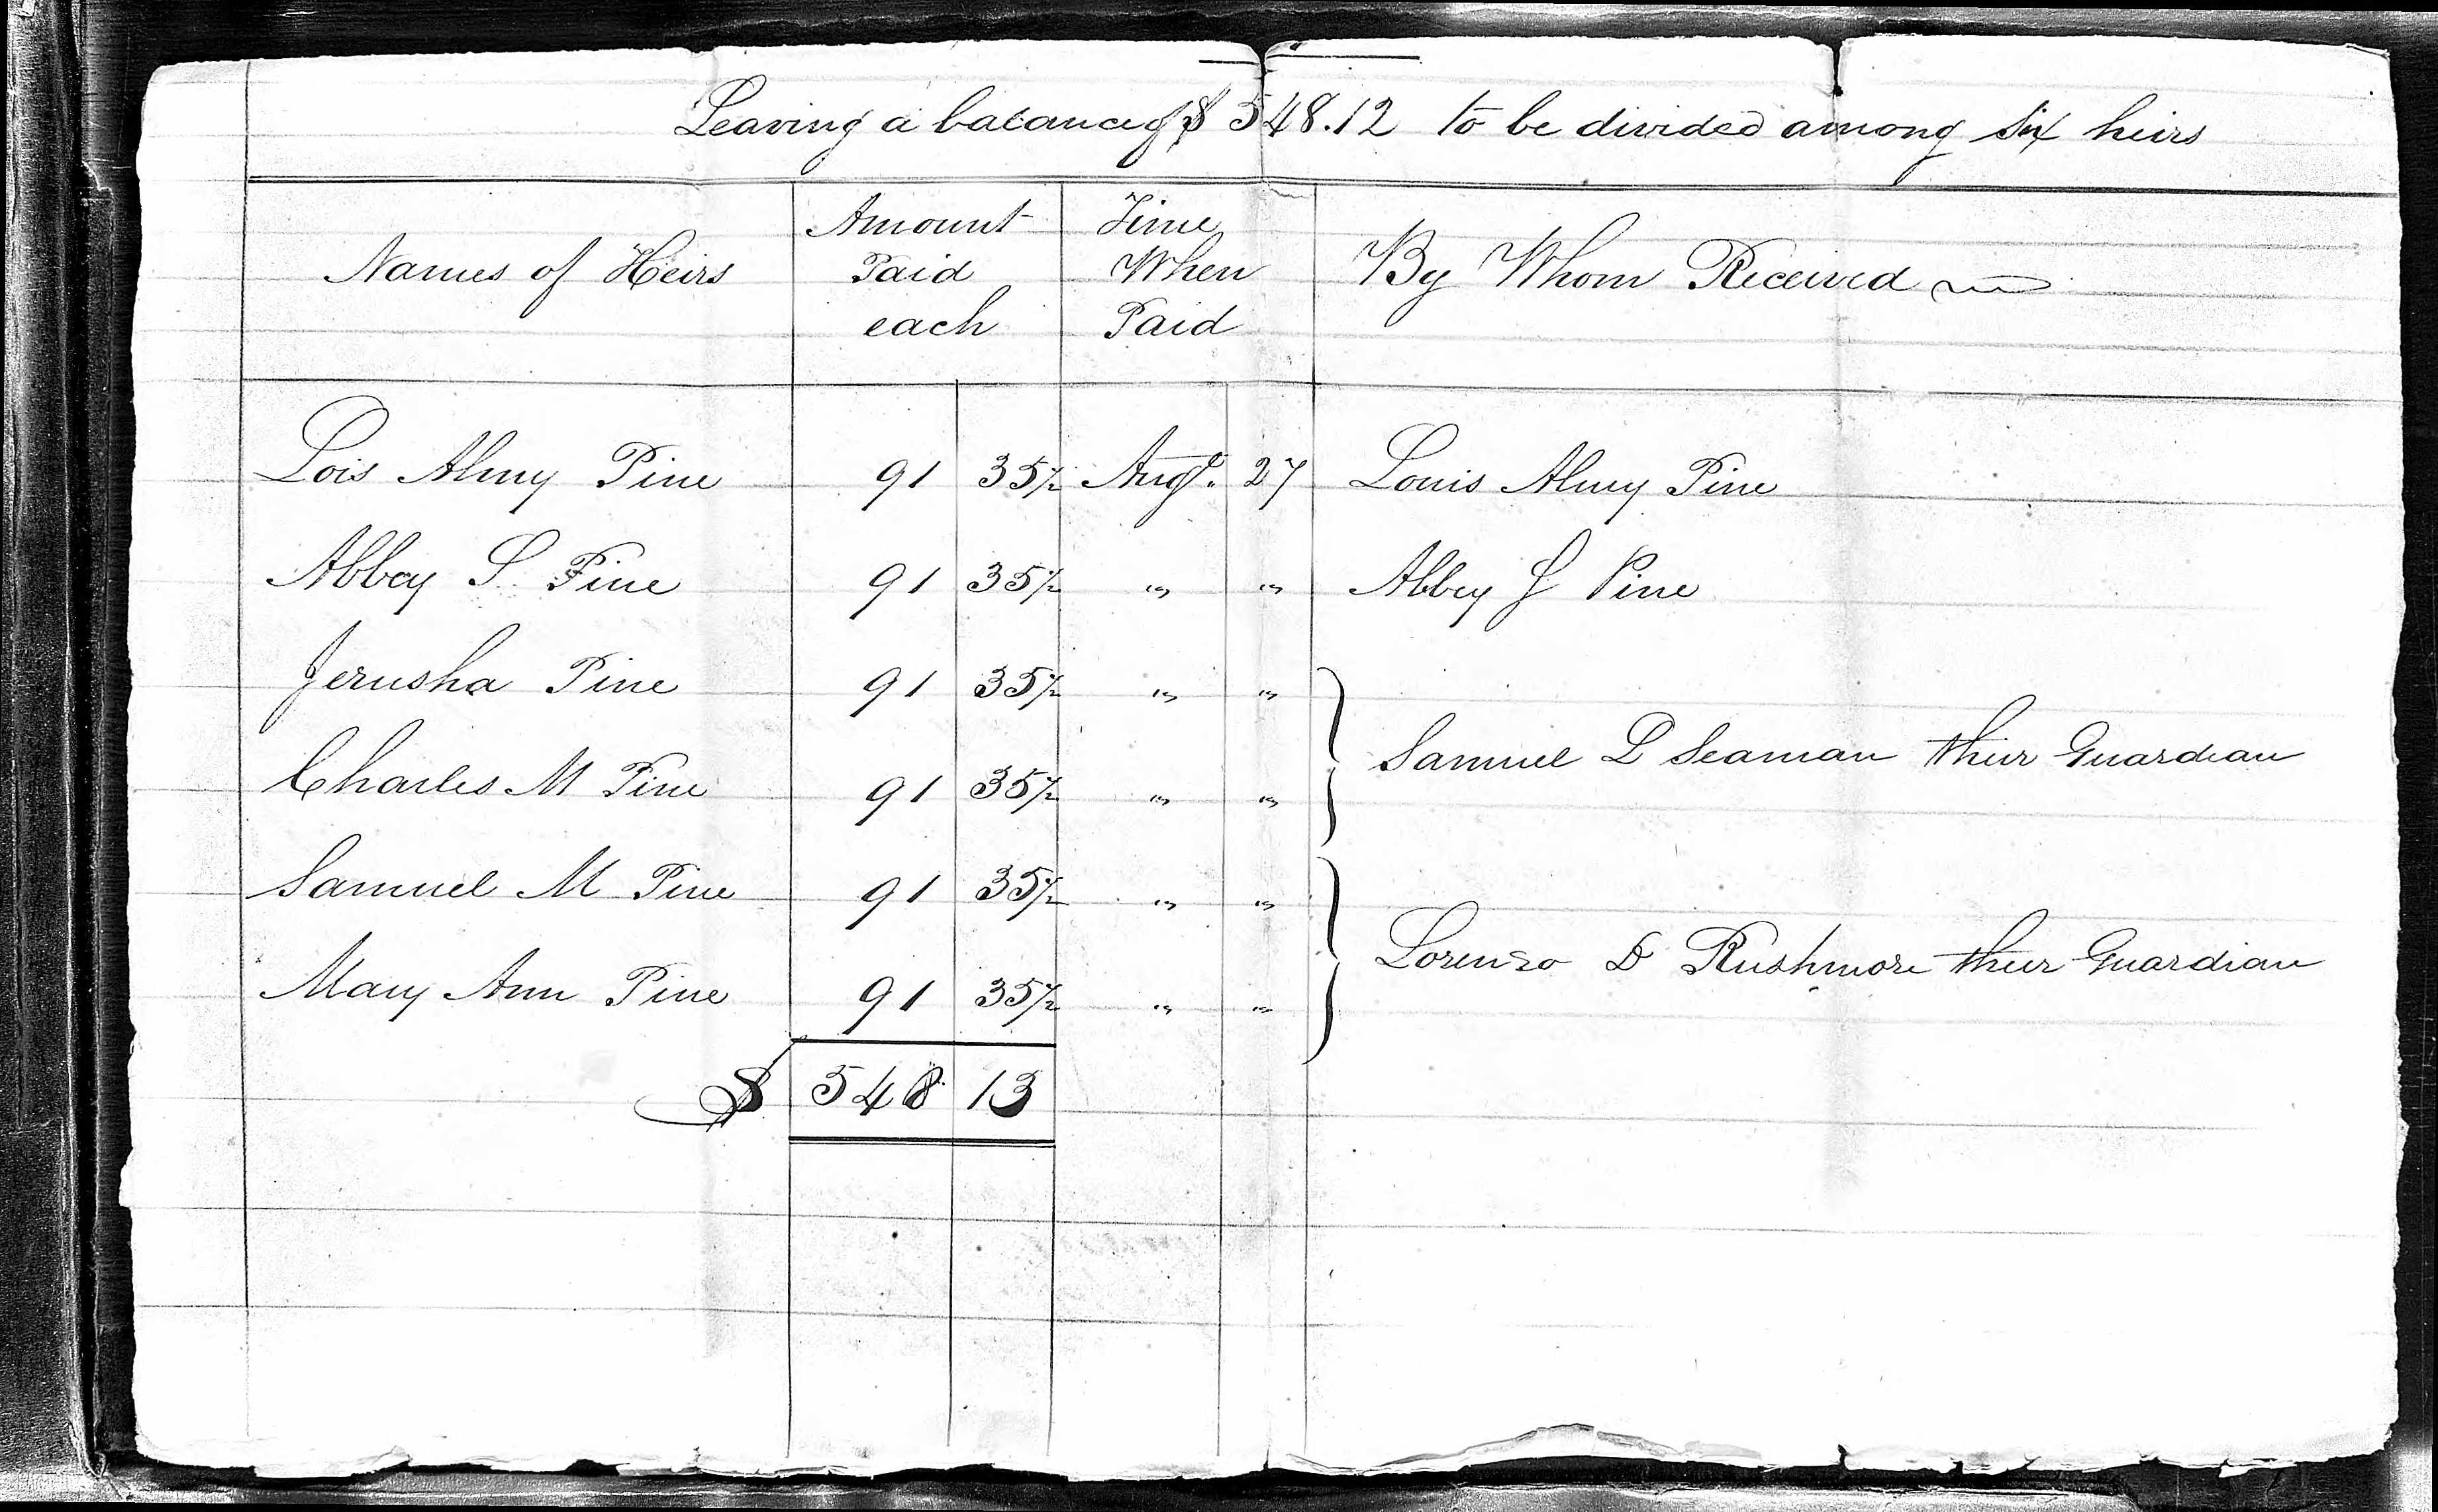 Leaving a balance of $ 548.12 to be divided among Six heirs
Names of Heirs
Amount Paid each
Time When Paid
By Whom Received
Lois Almy Pine 91 35½ Augt. 27 Louis Almy Pine
Abbey S. Pine 91 35½ " " Abbey S Pine
Jerusha Pine 91 35½ " "
Samuel L Seaman their Guardian
Charles M Pine 91 35½ " "
Samuel M Pine 91 35½ " "
Lorenzo D Rushmore their Guardian
Mary Ann Pine 91 35½ " "
$ 548 13